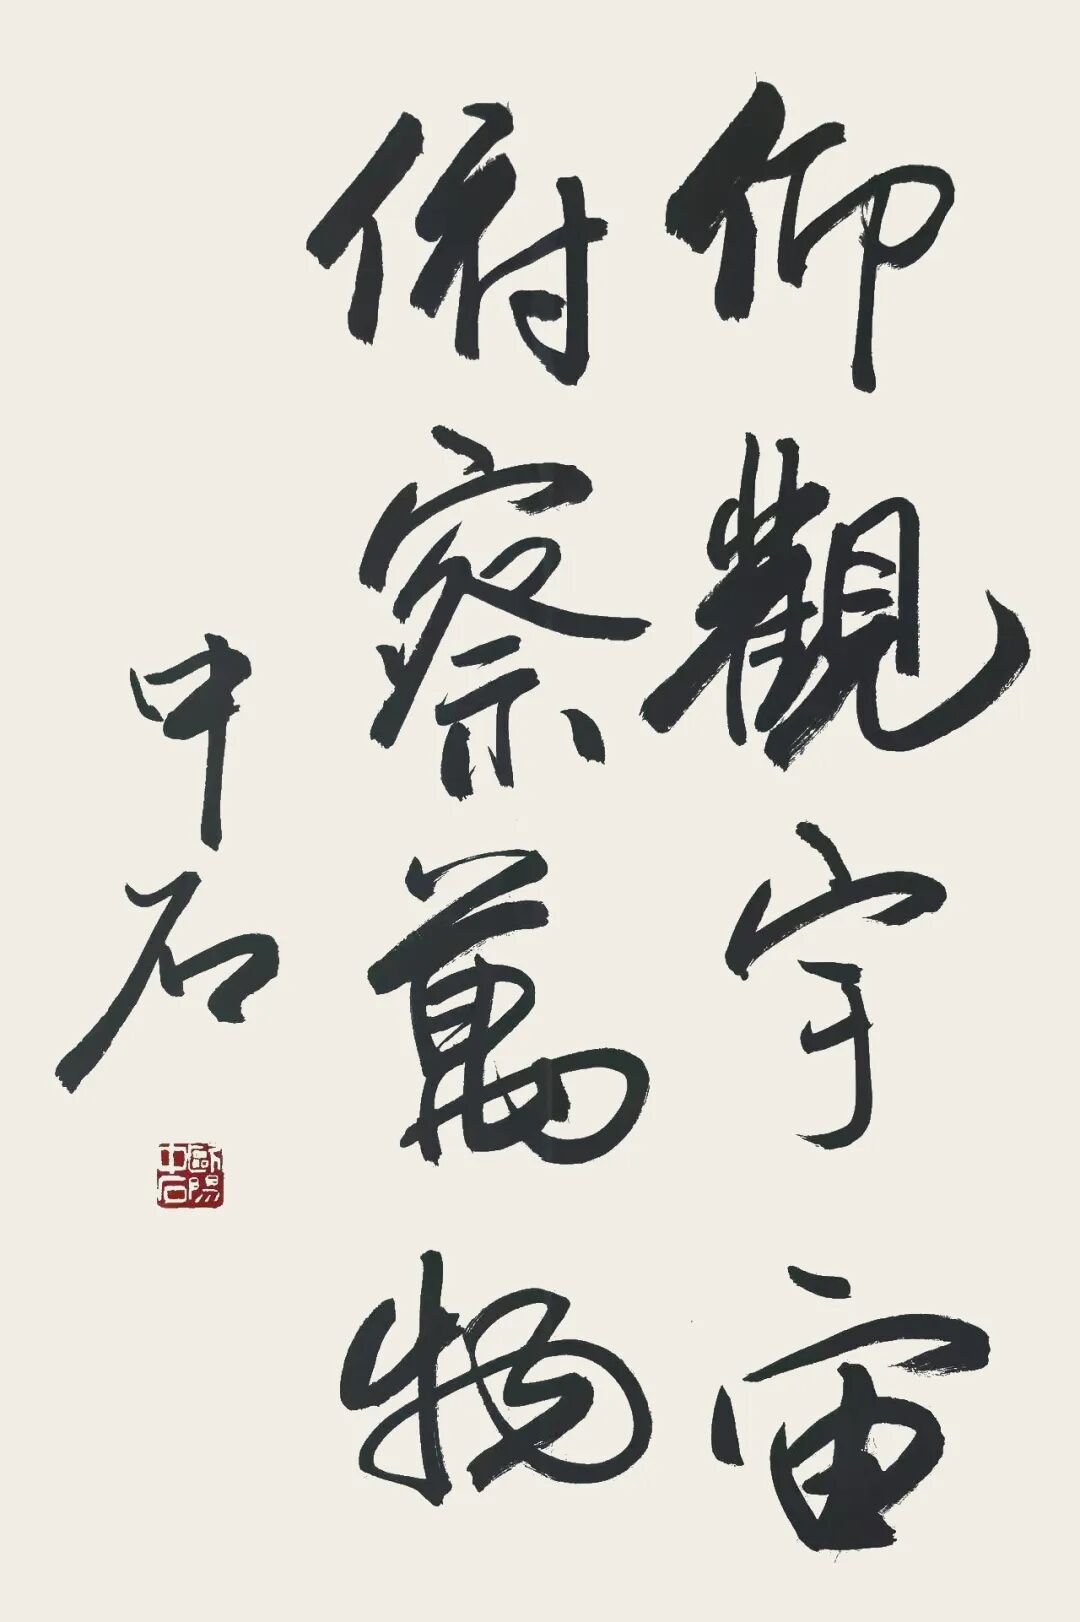 仰觀宇宙
俯察萬物
中石
歐陽中石